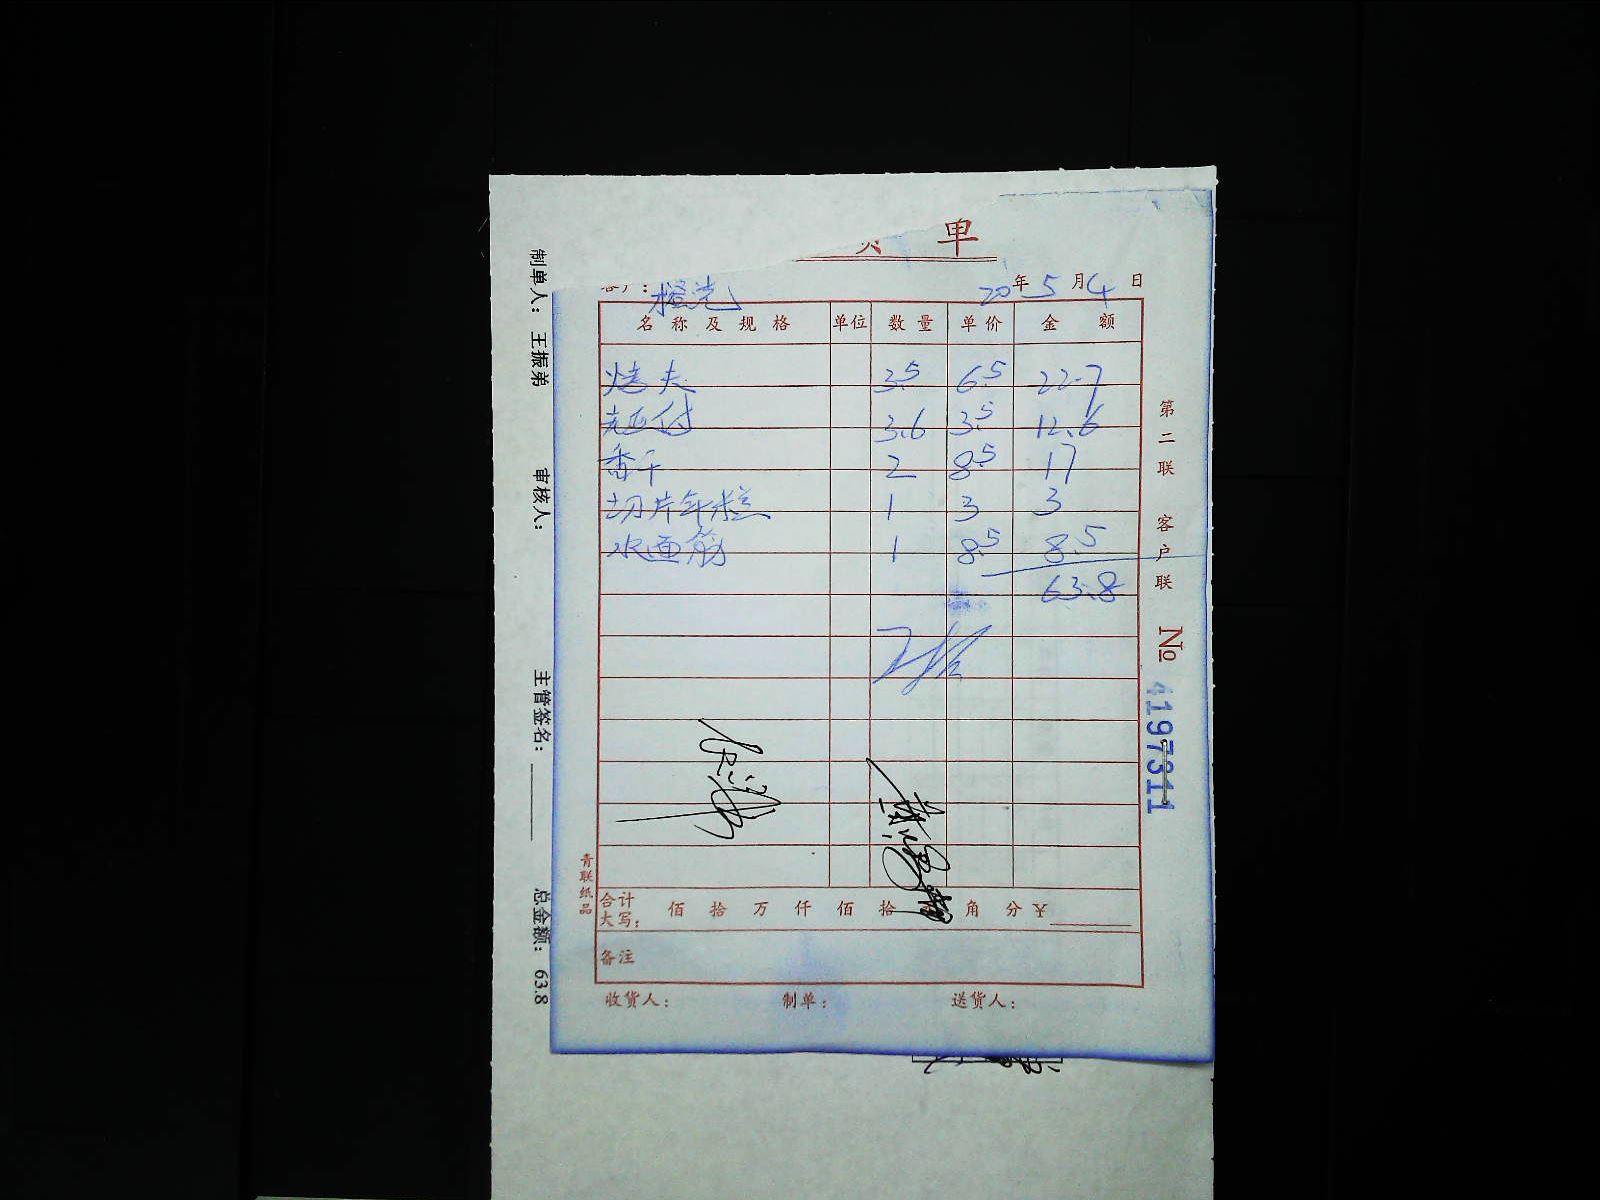 单
客户: 橙光 20年5月4日
名称及规格 单位 数量 单价 金额
烤夫 3.5 6.5 22.7
3.6 3.5 12.6
香干 2 8.5 17
切片年糕 1 3 3
水面筋 1 8.5 8.5
63.8
王振
合计
大写: 佰 拾 万 仟 佰 拾 角 分 ¥
备注
收货人: 制单: 送货人:
青联纸品
第二联 客户联
№ 4197311
制单人: 王振弟 审核人: 主管签名: 总金额: 63.8